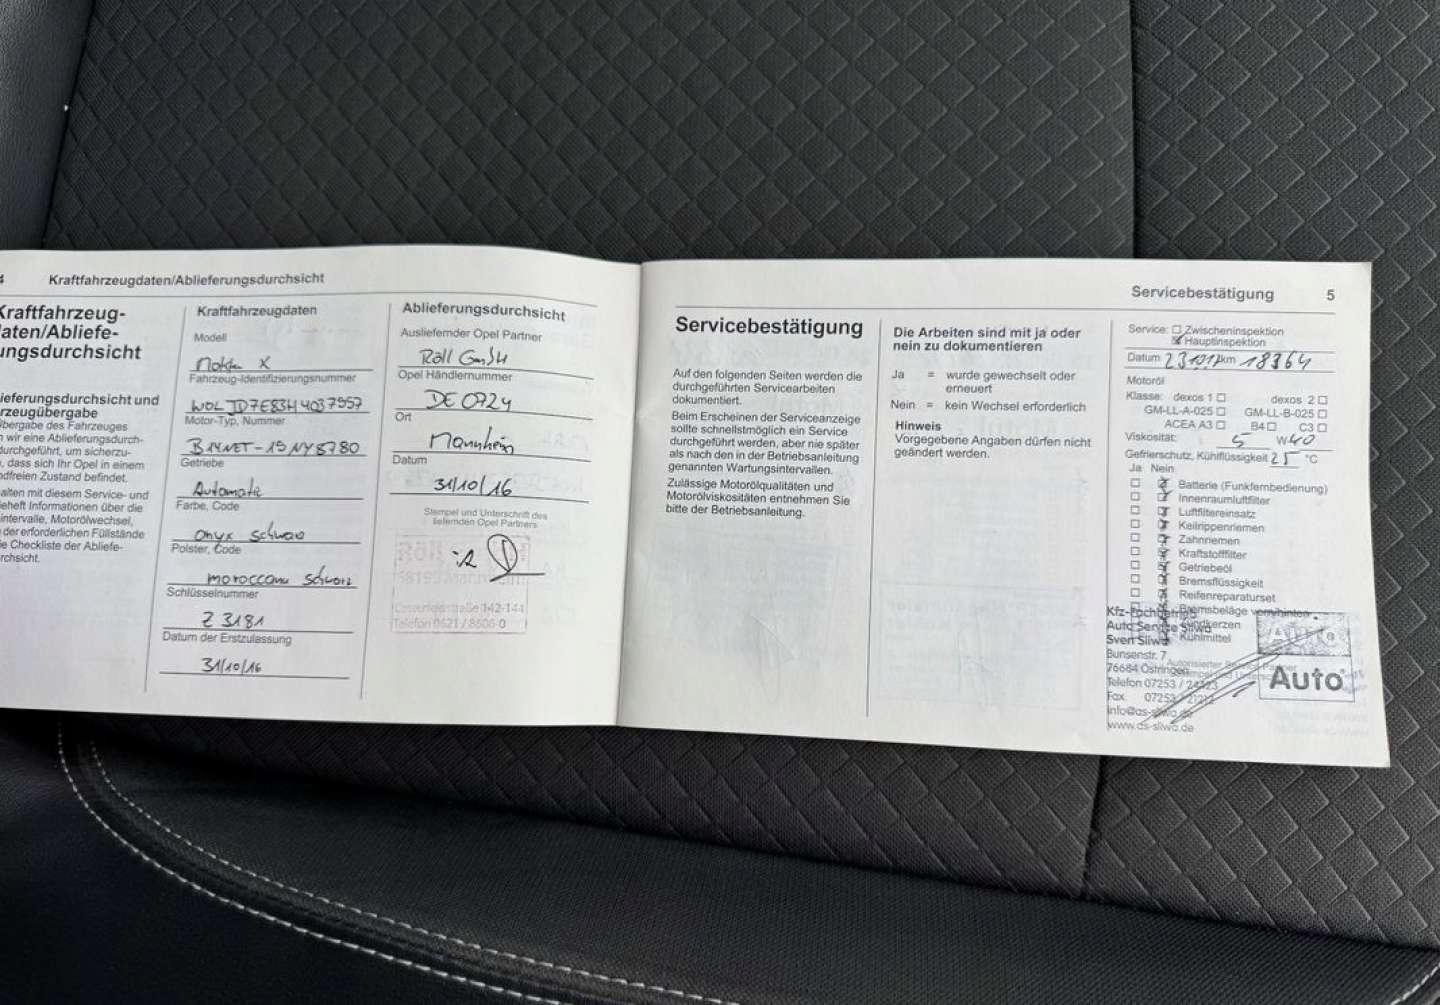 4 Kraftfahrzeugdaten/Ablieferungsdurchsicht
Kraftfahrzeug-
daten/Abliefe-
ungsdurchsicht
ieferungsdurchsicht und
rzeugübergabe
bergabe des Fahrzeuges
wir eine Ablieferungsdurch-
durchgeführt, um sicherzu-
, dass sich Ihr Opel in einem
ndfreien Zustand befindet.
alten mit diesem Service- und
ieheft Informationen über die
intervalle, Motorölwechsel,
der erforderlichen Füllstände
ie Checkliste der Abliefe-
rchsicht.
Kraftfahrzeugdaten
Modell
Mokka X
Fahrzeug-Identifizierungsnummer
W0LJD7E83H4037557
Motor-Typ, Nummer
B14NET-19NY8780
Getriebe
Automatic
Farbe, Code
Onyx schwarz
Polster, Code
moroccana schwarz
Schlüsselnummer
Z 3181
Datum der Erstzulassung
31/10/16
Ablieferungsdurchsicht
Ausliefernder Opel Partner
Röll GmbH
Opel Händlernummer
DE 0724
Ort
Mannheim
Datum
31/10/16
Stempel und Unterschrift des
liefernden Opel Partners
Casterfeldstraße 142-144
Telefon 0621 / 8606-0
Servicebestätigung 5
Servicebestätigung
Auf den folgenden Seiten werden die
durchgeführten Servicearbeiten
dokumentiert.
Beim Erscheinen der Serviceanzeige
sollte schnellstmöglich ein Service
durchgeführt werden, aber nie später
als nach den in der Betriebsanleitung
genannten Wartungsintervallen.
Zulässige Motorölqualitäten und
Motorölviskositäten entnehmen Sie
bitte der Betriebsanleitung.
Die Arbeiten sind mit ja oder
nein zu dokumentieren
Ja = wurde gewechselt oder
erneuert
Nein = kein Wechsel erforderlich
Hinweis
Vorgegebene Angaben dürfen nicht
geändert werden.
Service: Zwischeninspektion
Hauptinspektion
Datum km 18364
Motoröl
Klasse: dexos 1 dexos 2
GM-LL-A-025 GM-LL-B-025
ACEA A3 B4 C3
Viskosität: 5 W 40
Gefrierschutz, Kühlflüssigkeit 25 °C
Ja Nein
Batterie (Funkfernbedienung)
Innenraumluftfilter
Luftfiltereinsatz
Keilrippenriemen
Zahnriemen
Kraftstofffilter
Getriebeöl
Bremsflüssigkeit
Reifenreparaturset
Bremsbeläge vorn/hinten
Zündkerzen
Kühlmittel
Kfz-Fachbetrieb
Auto Service Sliwa
Sven Sliwa
Bunsenstr. 7
76684 Östringen
Telefon 07253 /
Fax 07253 /
info@as-sliwa.de
www.as-sliwa.de
Auto